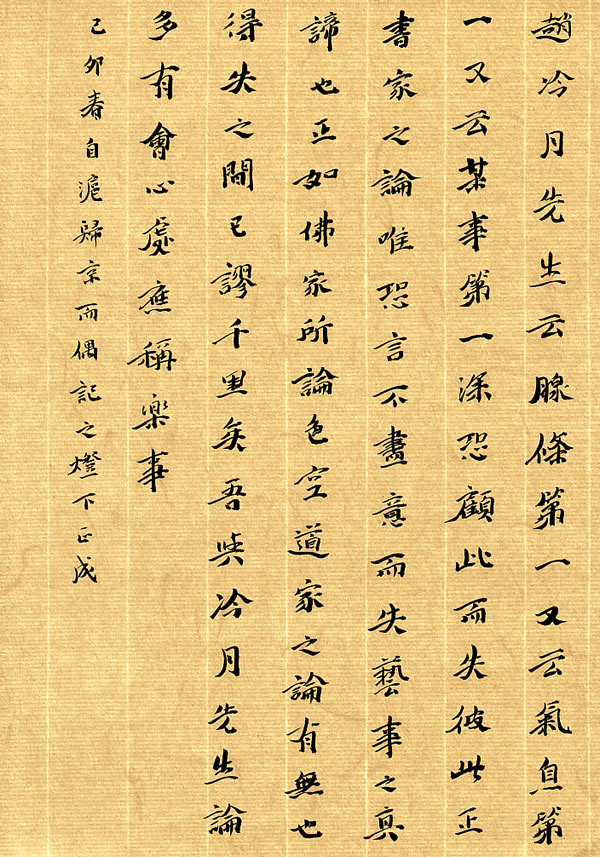 趙冷月先生云腺條第一又云氣息第
一又云某事第一深恐顧此而失彼此正
書家之論唯恐言不盡意而失藝事之真
諦也正如佛家所論色空道家之論有無也
得失之間已謬千里矣吾與冷月先生論
多有會心處應稱樂事
己卯春自滬歸京而偶記之燈下正成